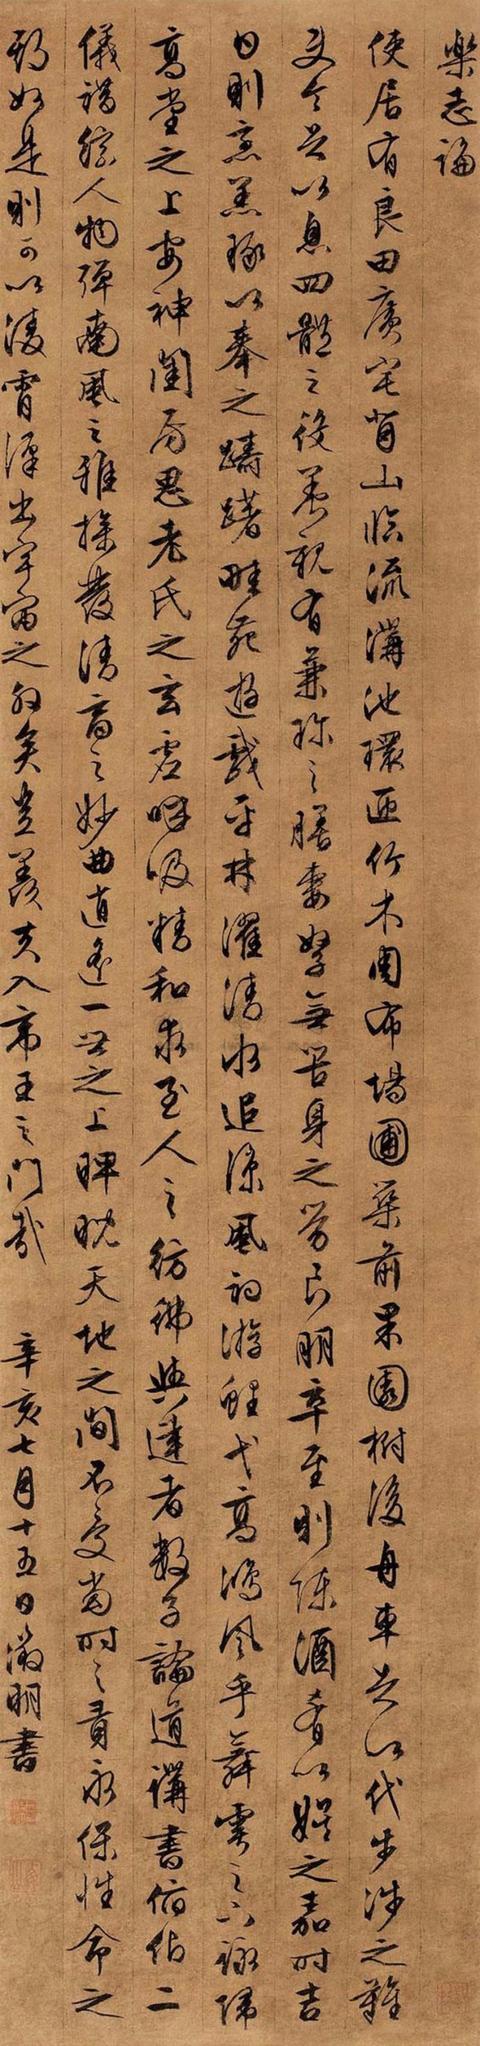 樂志論
使居有良田廣宅背山臨流溝池環匝竹木周布場圃築前果園樹後舟車足以代步涉之難
使令足以息四體之役養親有兼珍之膳妻孥無苦身之勞良朋萃至則陳酒肴以娛之嘉時吉
日則烹羔豚以奉之躊躇畦苑遊戲平林濯清水追涼風釣游鯉弋高鴻風乎舞雩之下詠歸
高堂之上安神閨房思老氏之玄虛呼吸精和求至人之彷彿與達者數子論道講書俯仰二
儀錯綜人物彈南風之雅操發清音之妙曲逍遙一世之上睥睨天地之間不受當時之責永保性命之
期如是則可以凌霄漢出宇宙之外矣豈羨夫入帝王之門哉 辛亥七月十五日徵明書